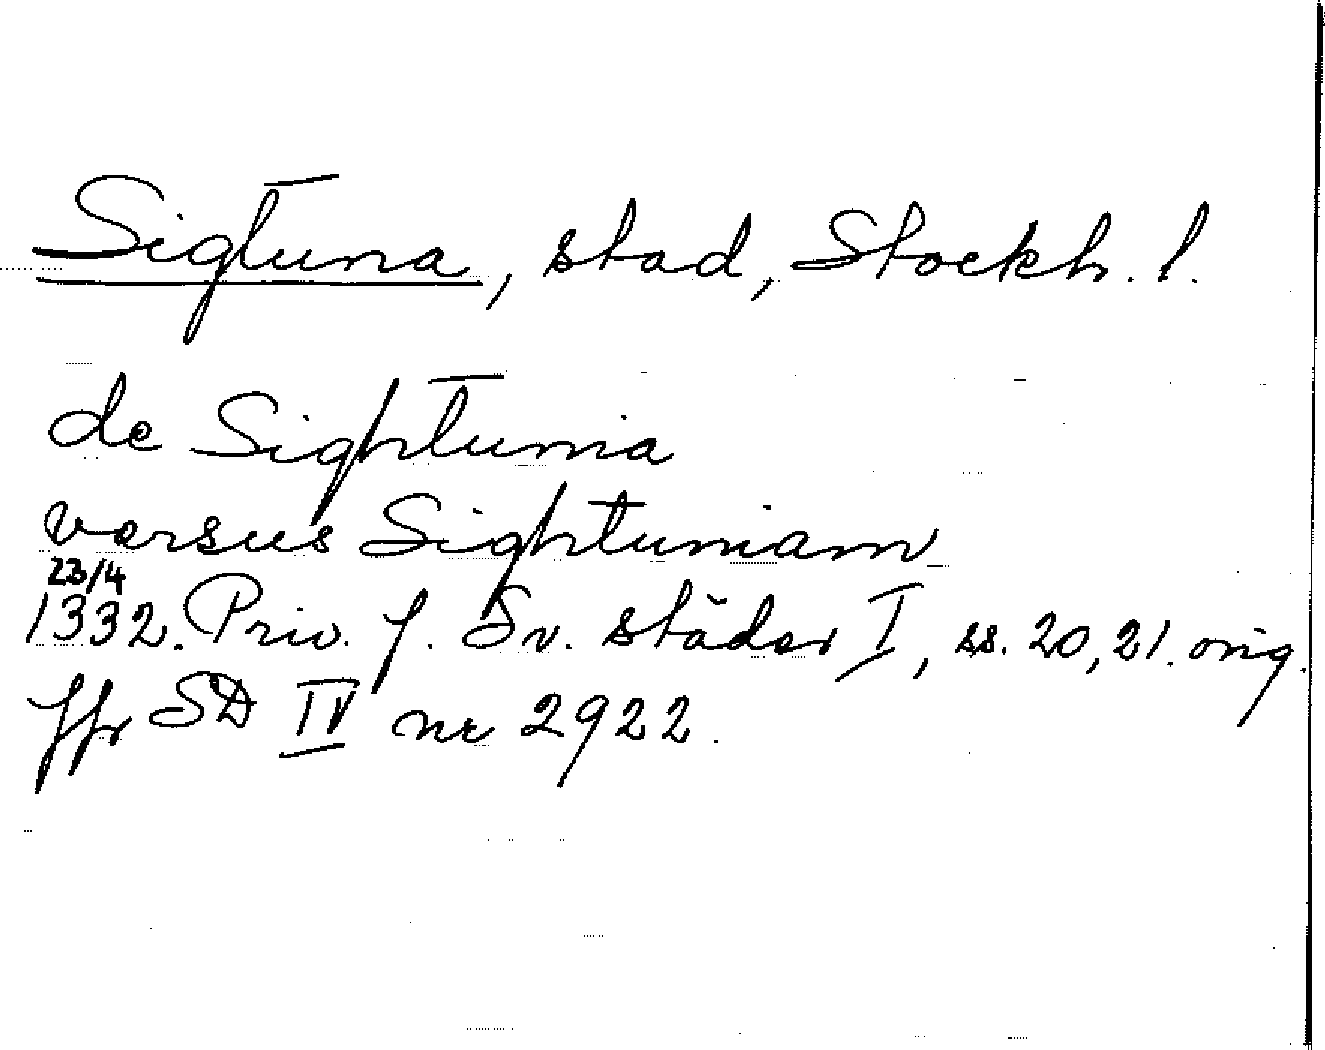 Sigtuna, stad, Stockh. l.
de Sightunia
versus Sightuniam
23/4
1332. Priv. f. Sv. städer I, ss. 20, 21. orig.
Jfr SD IV nr 2922.